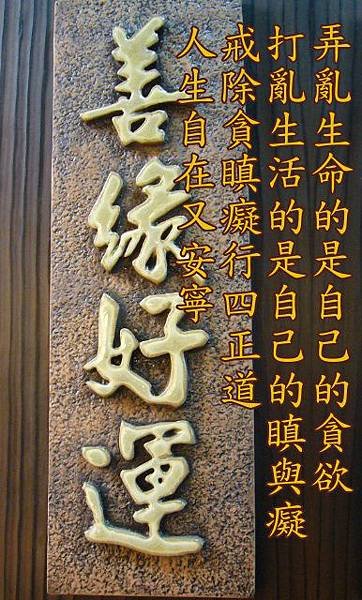 弄亂生命的是自己的貪欲
打亂生活的是自己的瞋與癡
戒除貪瞋癡行四正道
人生自在又安寧
善緣好運